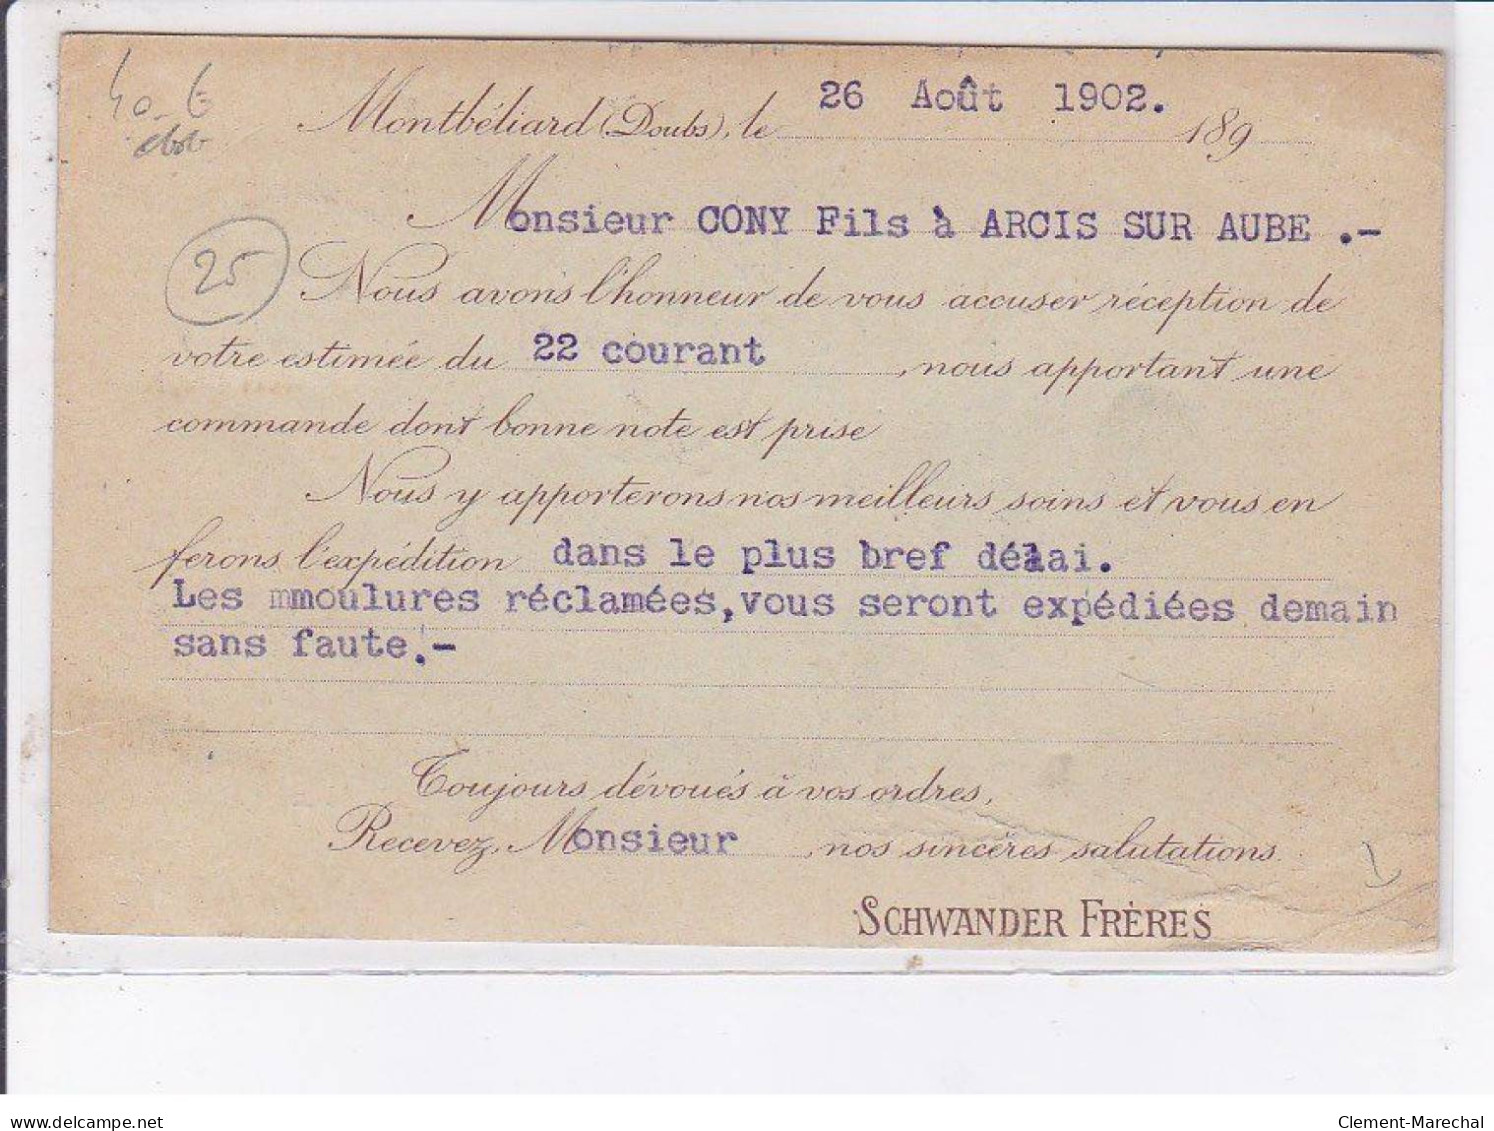 40 - €
Montbéliard (Doubs), le 26 Août 1902. 189
Monsieur CONY Fils à ARCIS SUR AUBE .-
25
Nous avons l'honneur de vous accuser réception de
votre estimée du 22 courant , nous apportant une
commande dont bonne note est prise
Nous y apporterons nos meilleurs soins et vous en
ferons l'expédition dans le plus bref délai.
Les mmoulures réclamées,vous seront expédiées demain
sans faute.!-
Toujours dévoués à vos ordres,
Recevez, Monsieur , nos sincères salutations.
SCHWANDER FRÈRES
www.delcampe.net
Clement-Marechal